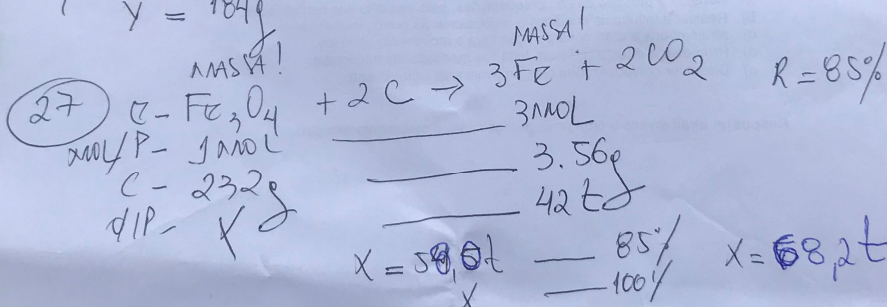 Y = 184g
MASSA! MASSA!
27 E- Fe3O4 + 2C → 3Fe + 2CO2 R = 85%
MOL/P- 1MOL ____ 3MOL
C- 232g ____ 3.56g
d/P- X ____ 42t
X = 58,0t ____ 85% X = 68,2t
X ____ 100%